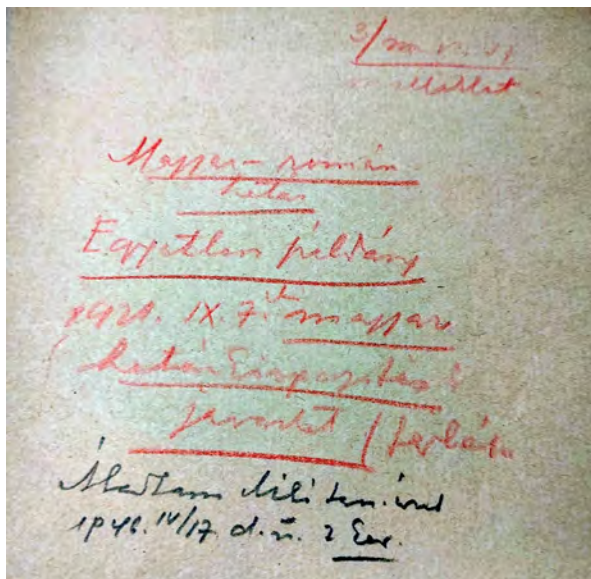 3/
melléklet
Magyar-román
határ
Egyetlen példány
1921. IX. 7. magyar
határkiigazítási
javaslat /
Átadtam Mili
1946. IV/17. d.u. 2